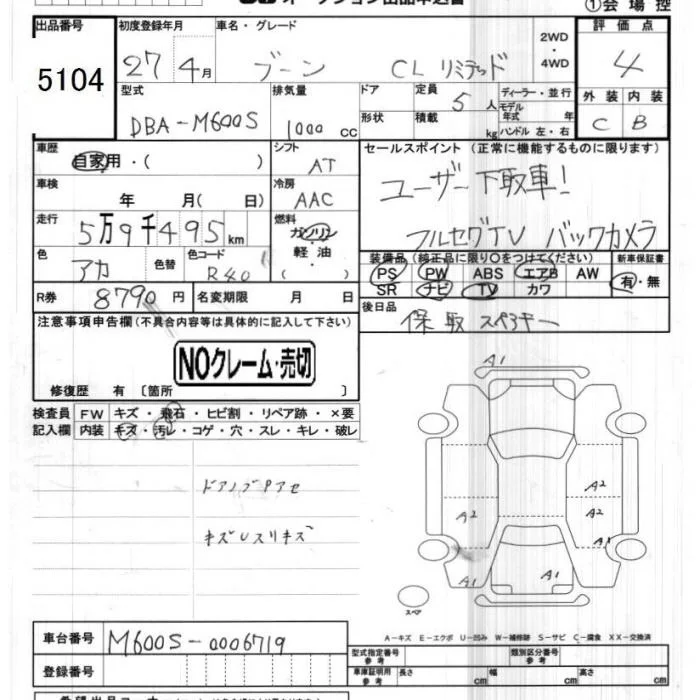 オークション出品申込書
①会場控
出品番号 初度登録年月 車名・グレード 2WD・4WD 評価点
5104 27年4月 ブーン CL リミテッド 4
型式 排気量 ドア 定員 5人 ディーラー・並行 外装 内装
DBA-M600S 1000cc 形状 積載 kg モデル年式 年 ハンドル 左・右 C B
車歴 シフト セールスポイント(正常に機能するものに限ります)
自家用・( ) AT ユーザー下取車!
車検 冷房
年 月( 日) AAC
走行 燃料 フルセグTV バックカメラ
5万9千495km ガソリン・軽油・
色 色替 色コード 装備品(純正品に限り○をつけてください) 新車保証書
アカ R40 PS PW ABS エアB AW 有・無
SR ナビ TV カワ
R券 8790円 名変期限 月 日 後日品
保 取 スペアキー
注意事項申告欄(不具合内容等は具体的に記入して下さい)
NOクレーム・売切
修復歴 有〔箇所 〕
検査員 FW キズ・飛石・ヒビ割・リペア跡・×要
記入欄 内装 キズ・汚レ・コゲ・穴・スレ・キレ・破レ
A1
ドアノブPアセ
A2
A2 A2
キズUスリキズ
A1
A1 A1
スペア
A-キズ E-エクボ U-凹み W-補修跡 S-サビ C-腐食 XX-交換済
車台番号 M600S-0006719
型式指定番号 参考 類別区分番号 参考
登録番号 車庫証明用 参考 長さ cm 幅 cm 高さ cm